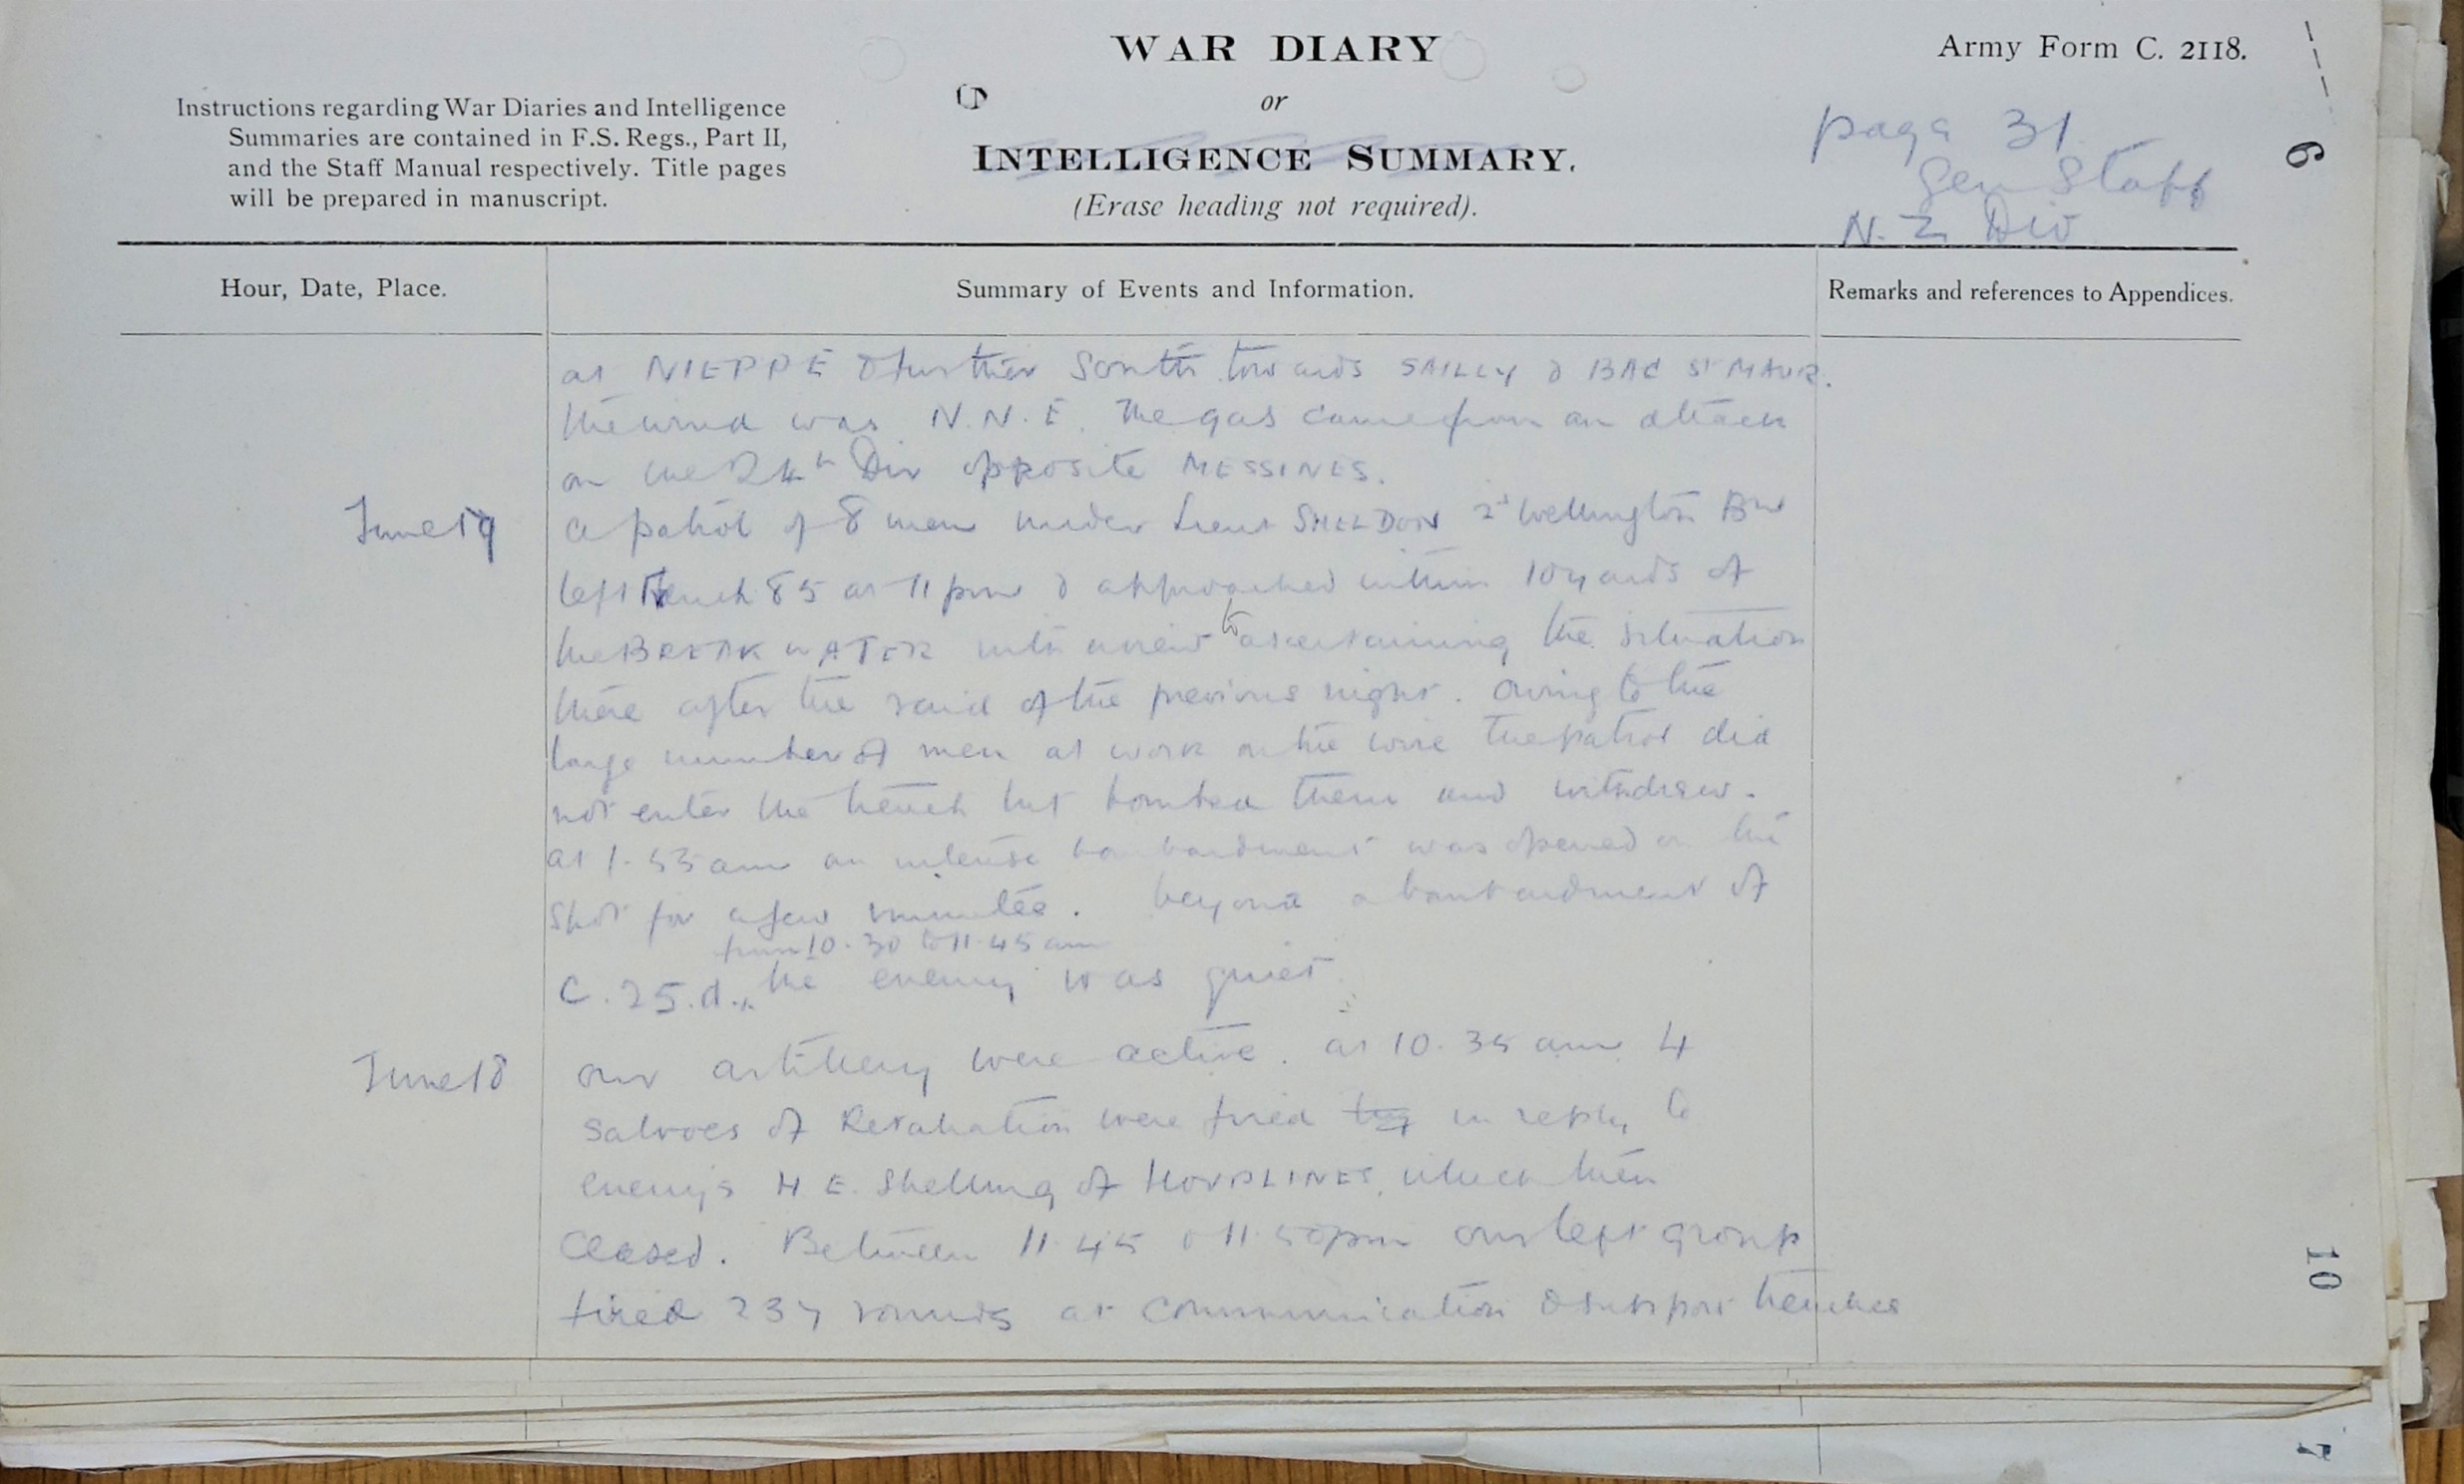 WAR DIARY
or
INTELLIGENCE SUMMARY.
(Erase heading not required).
Army Form C. 2118.
Instructions regarding War Diaries and Intelligence
Summaries are contained in F.S. Regs., Part II,
and the Staff Manual respectively. Title pages
will be prepared in manuscript.
page 31
Gen Staff
N. Z. Div
6
Hour, Date, Place.
Summary of Events and Information.
Remarks and references to Appendices.
at NIEPPE & further South towards SAILLY & BAC ST MAUR.
The wind was N.N.E. The gas came from an attack
on the 24th Div opposite MESSINES.
June 19
A patrol of 8 men under Lieut SHELDON 2d Wellington Bn
left Trench 85 at 11 pm & approached within 10 yards of
the BREAKWATER with a view to ascertaining the situation
there after the raid of the previous night. Owing to the
large number of men at work on the wire the patrol did
not enter the trench but bombed them and withdrew.
at 1.55 am an intense bombardment was opened on the
spot for a few minutes. beyond a bombardment of
from 10.30 to 11.45 am
C.25.d. the enemy was quiet.
June 18
our artillery were active. at 10.35 am 4
salvoes of Retaliation were fired in reply to
enemy's H.E. Shelling of HOUPLINES, which then
ceased. Between 11.45 & 11.50 pm our left group
fired 237 rounds at communication & support trenches
10
7